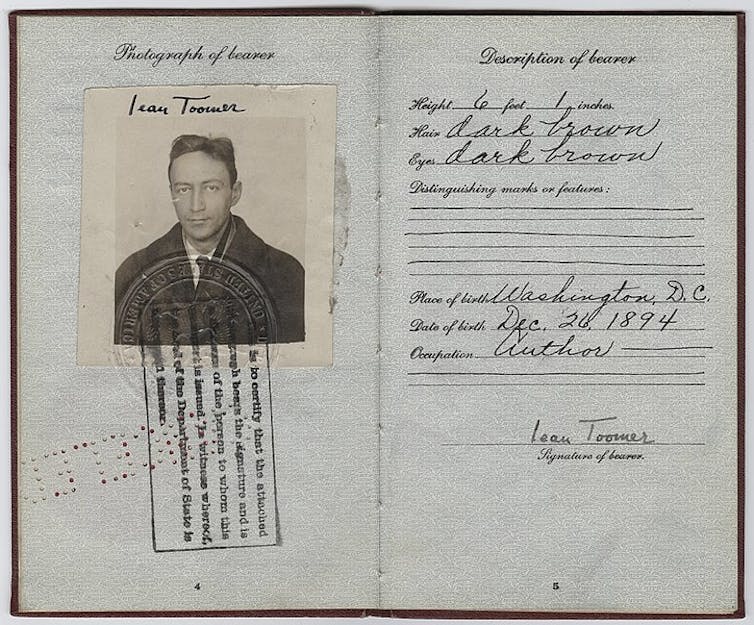 Photograph of bearer
Jean Toomer
UNITED STATES OF AMERICA
is to certify that the attached
photograph bears the signature and is
of the person to whom this
is issued. In witness whereof,
seal of the Department of State is
thereon.
4
Description of bearer
Height 6 feet 1 inches.
Hair dark brown
Eyes dark brown
Distinguishing marks or features:
Place of birth Washington, D.C.
Date of birth Dec. 26, 1894
Occupation Author
Jean Toomer
Signature of bearer.
5